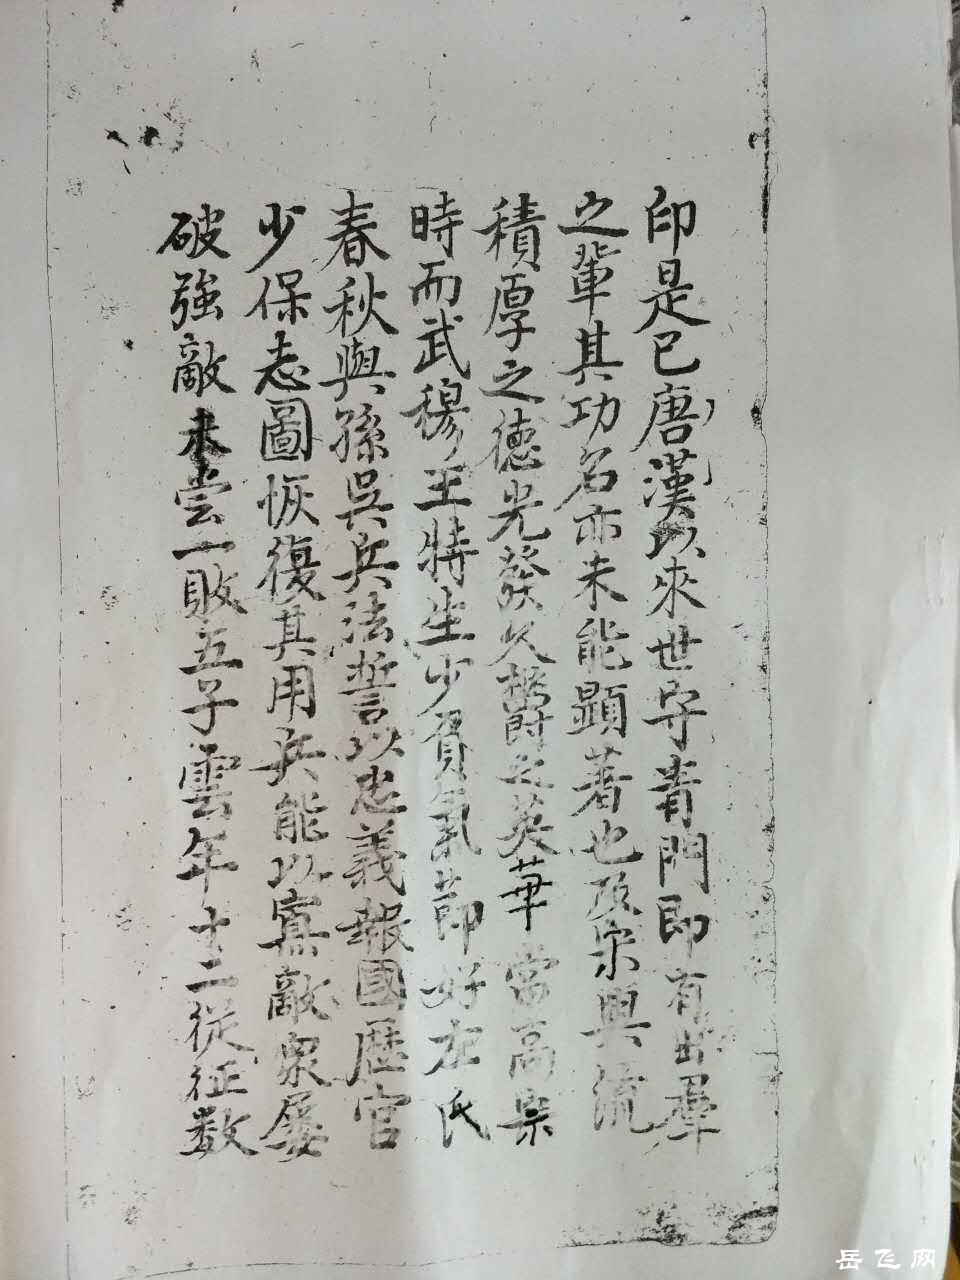 印是已唐漢以來世守青門即有出羣
之輩其功名亦未能顯著也及宋興流
積厚之德光發久鬱之英華當高宗
時而武穆王特生少負氣節好左氏
春秋與孫吳兵法誓以忠義報國歷官
少保志圖恢復其用兵能以寡敵衆屡
破強敵未尝一敗五子雲年十二從征数
岳飞网